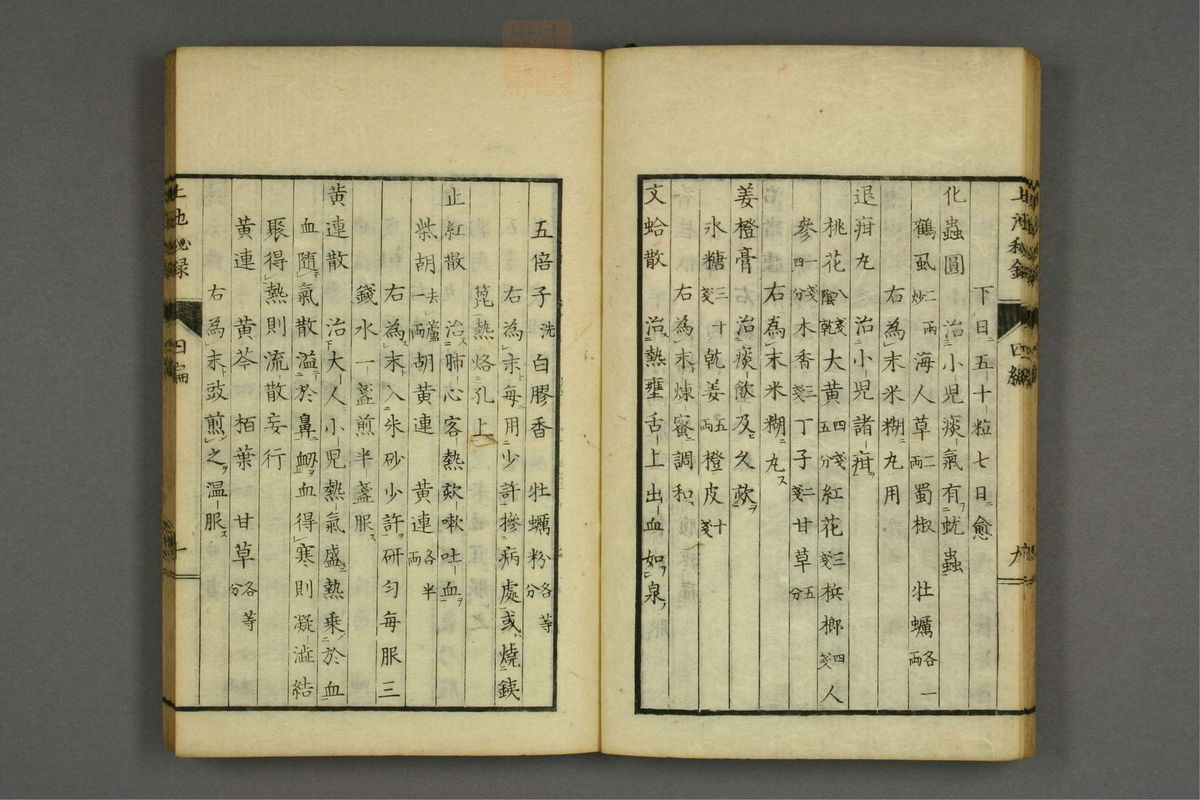 下日五十粒七日愈
化蟲圓 治小児痰氣有蚘蟲
鶴虱二兩炒 海人草二兩 蜀椒 牡蠣各一兩
右為末米糊丸用
退疳丸 治小児諸疳
桃花八戔陰乾 大黄四戔五分 紅花三戔 梹榔四戔 人
參一戔四分 木香三戔 丁子二戔 甘草五分
右為末米糊丸
姜橙膏 治痰飲及久欬
氷糖三十戔 乾姜五兩 橙皮十戔
右為末煉蜜調和
文蛤散 治熱壅舌上出血如泉
五倍子洗 白膠香 牡蠣粉各等分
右為末毎用少許摻病處或燒鐵
篦熱烙孔上
止紅散 治肺心客熱欬嗽吐血
柴胡去蘆一兩 胡黄連 黄連各半兩
右為末入朱砂少許研匀毎服三
錢水一盞煎半盞服
黄連散 治大人小児熱氣盛熱乘於血
血隨氣散溢於鼻衂血得寒則凝澁結
聚得熱則流散妄行
黄連 黄芩 栢葉 甘草各等分
右為末豉煎之温服
上池秘録 四編 九